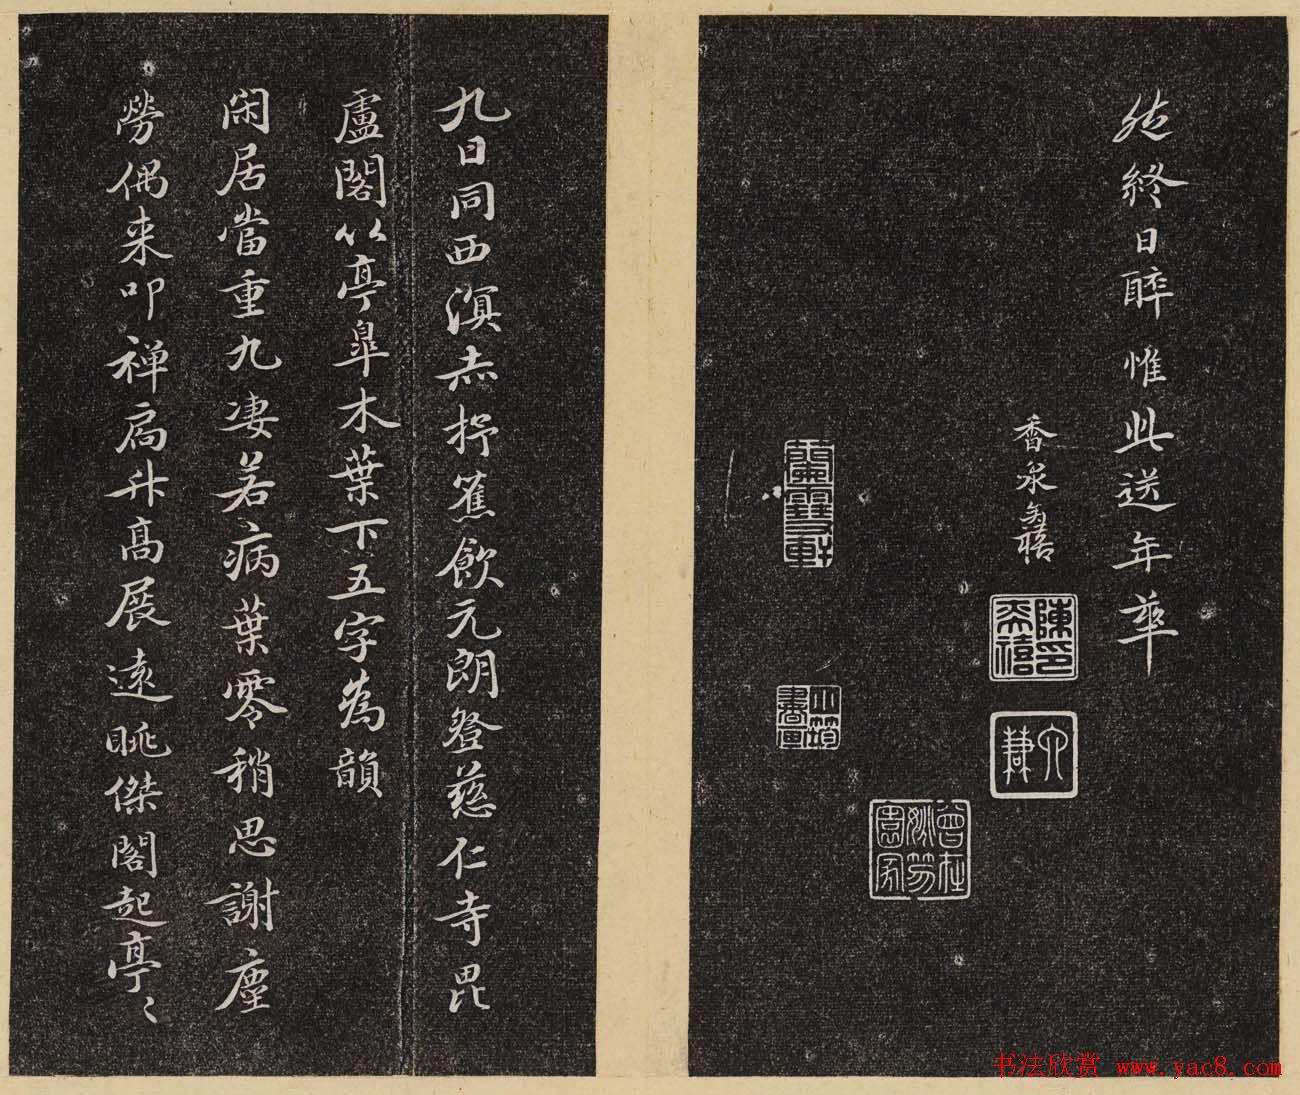 然終日醉惟此送年華
香泉奕禧
陳印奕禧
九日同西溟赤抒蕉飲元朗登慈仁寺毘
盧閣以亭皐木葉下五字為韻
閑居當重九凄若病葉零稍思謝塵
勞偶来叩禅扃升高展遠眺傑閣起亭〻
书法欣赏 www.yac8.com